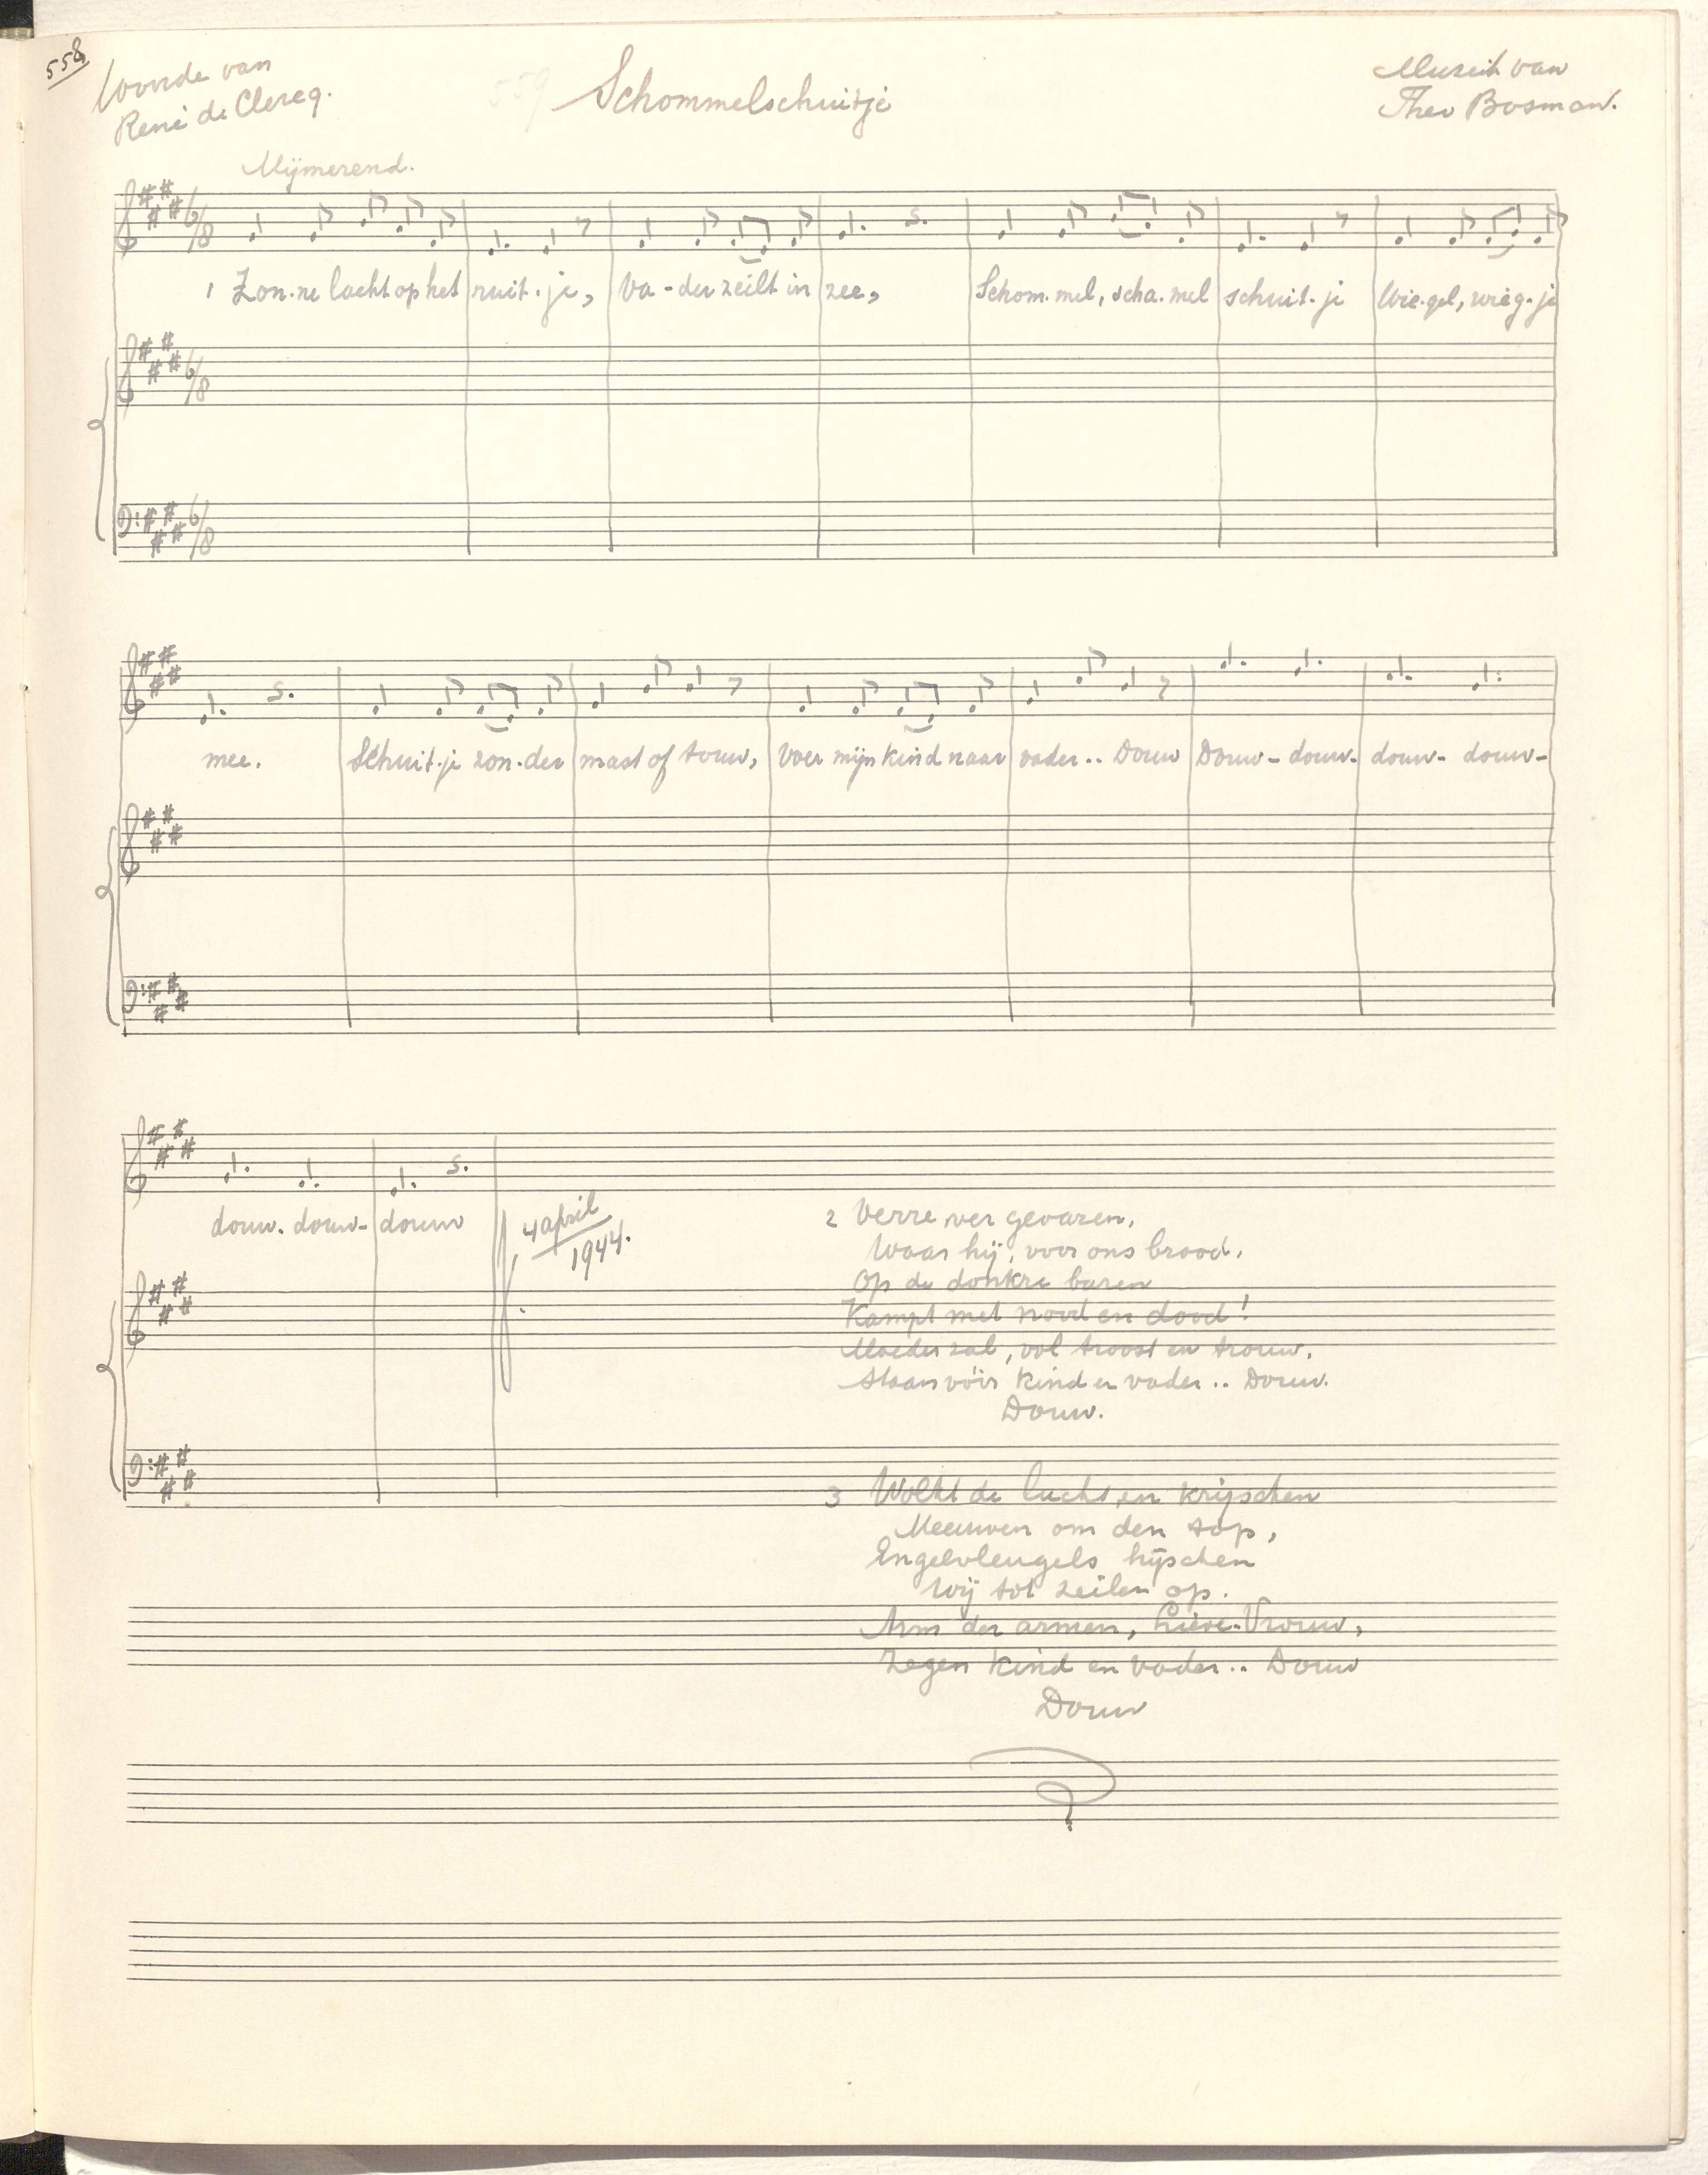 558
Woorde van
René de Clercq.
559
Schommelschuitje
Muziek van
Theo Bosman.
Mijmerend.
6/8
1 Zon-ne lacht op het ruit-je, Va-der zeilt in zee, Schom-mel, scha-mel schuit-je Wie-gel, wieg-je
6/8
6/8
mee. Schuit-je zon-der mast of touw, Voer mijn kind naar vader.. Douw Douw-douw- douw- douw-
douw- douw- douw
4 april
1944.
2 Verre, ver gevaren,
Waar hij, voor ons brood,
Op de donkre baren
Kampt met nood en dood!
Moeder zal, vol troost en trouw,
Staan vóór kind en vader.. Douw.
Douw.
3 Wolkt de lucht, en krijschen
Meeuwen om den top,
Engelvleugels hijschen
Wij tot zeilen op.
Arm der armen, Lieve-Vrouw,
Zegen kind en vader.. Douw
Douw